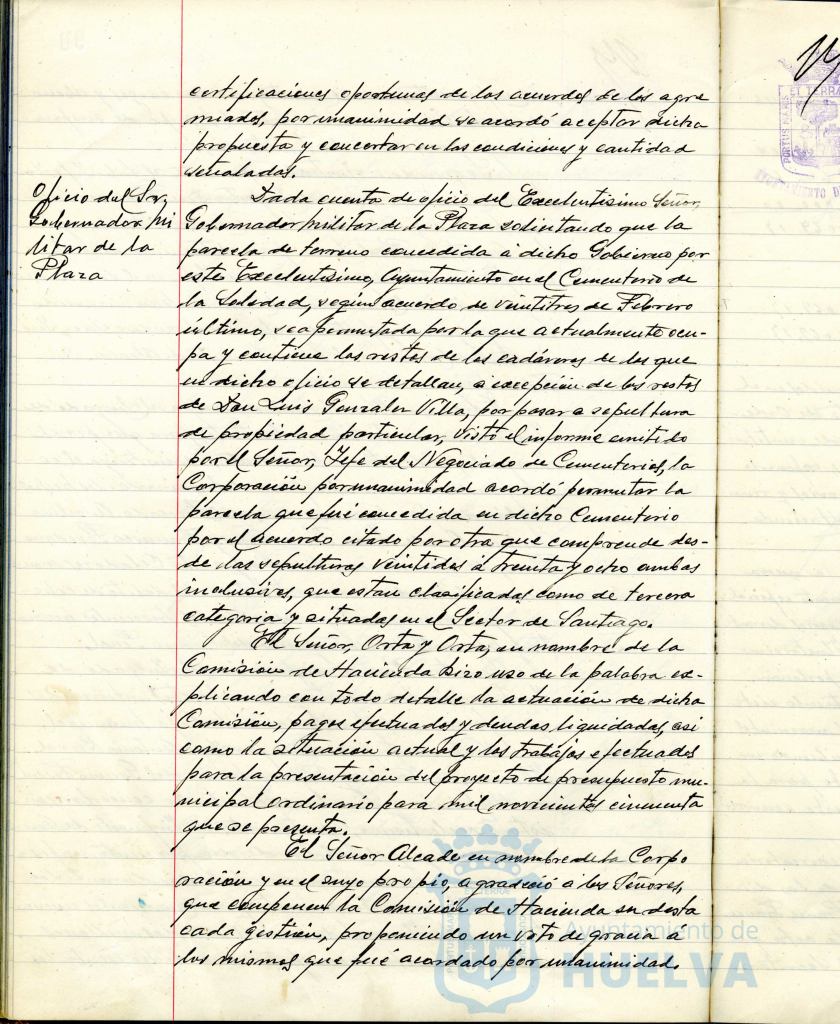 certificaciones oportunas de los acuerdos de los agre
miados, por unanimidad se acordó aceptar dicha
propuesta y concertar en las condiciones y cantidad
señaladas.
Oficio del Sr,
Gobernador Mi
litar de la
Plaza
Dada cuenta de oficio del Excelentisimo Señor,
Gobernador Militar de la Plaza solicitando que la
parcela de terreno concedida á dicho Gobierno por
este Excelentisimo, Ayuntamiento en el Cementerio de
la Soledad, según acuerdo de veintitres de Febrero
último, sea permutada por la que actualmente ocu-
pa y contiene los restos de los cadáveres de los que
en dicho oficio se detallan, á excepción de los restos
de Don Luis Gonzalez Villa, por pasar a sepultura
de propiedad particular, visto el informe emitido
por el Señor, Jefe del Negociado de Cementerios, la
Corporación por unanimidad acordó permutar la
parcela que fué concedida en dicho Cementerio
por el acuerdo citado por otra que comprende des-
de las sepulturas veintidos á treinta y ocho ambas
inclusives, que estan clasificadas como de tercera
categoria y situadas en el Sector de Santiago.
El Señor, Orta y Orta, en nombre de la
Comisión de Hacienda hizo uso de la palabra ex-
plicando con todo detalle la actuación de dicha
Comisión, pagos efectuados y deudas liquidadas, asi
como la situación actual y los trabajos efectuados
para la presentación del proyecto de presupuesto mu-
nicipal ordinario para mil novecientos cincuenta
que se presenta.
El Señor Alcalde en nombre de la Corpo
ración y en el suyo propio, agradeció á los Señores,
que componen la Comisión de Hacienda su desta
cada gestión, proponiendo un voto de gracia á
los mismos que fué acordado por unanimidad.
Ayuntamiento de
HUELVA